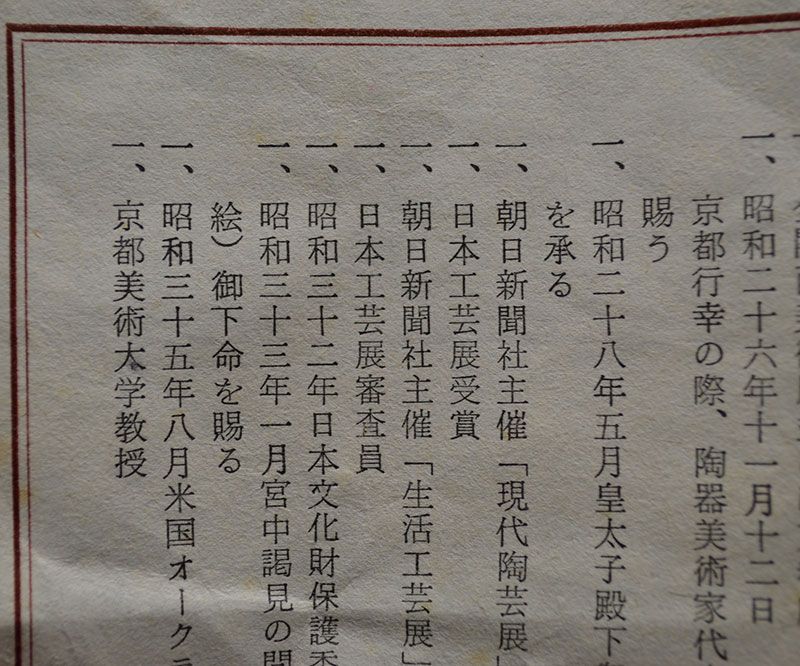 一、昭和二十六年十一月十二日
京都行幸の際、陶器美術家代
賜う
一、昭和二十八年五月皇太子殿下
を承る
一、朝日新聞社主催「現代陶芸展」
一、日本工芸展受賞
一、朝日新聞社主催「生活工芸展」
一、日本工芸展審査員
一、昭和三十二年日本文化財保護委
一、昭和三十三年一月宮中謁見の間
絵）御下命を賜る
一、昭和三十五年八月米国オークラ
一、京都美術大学教授